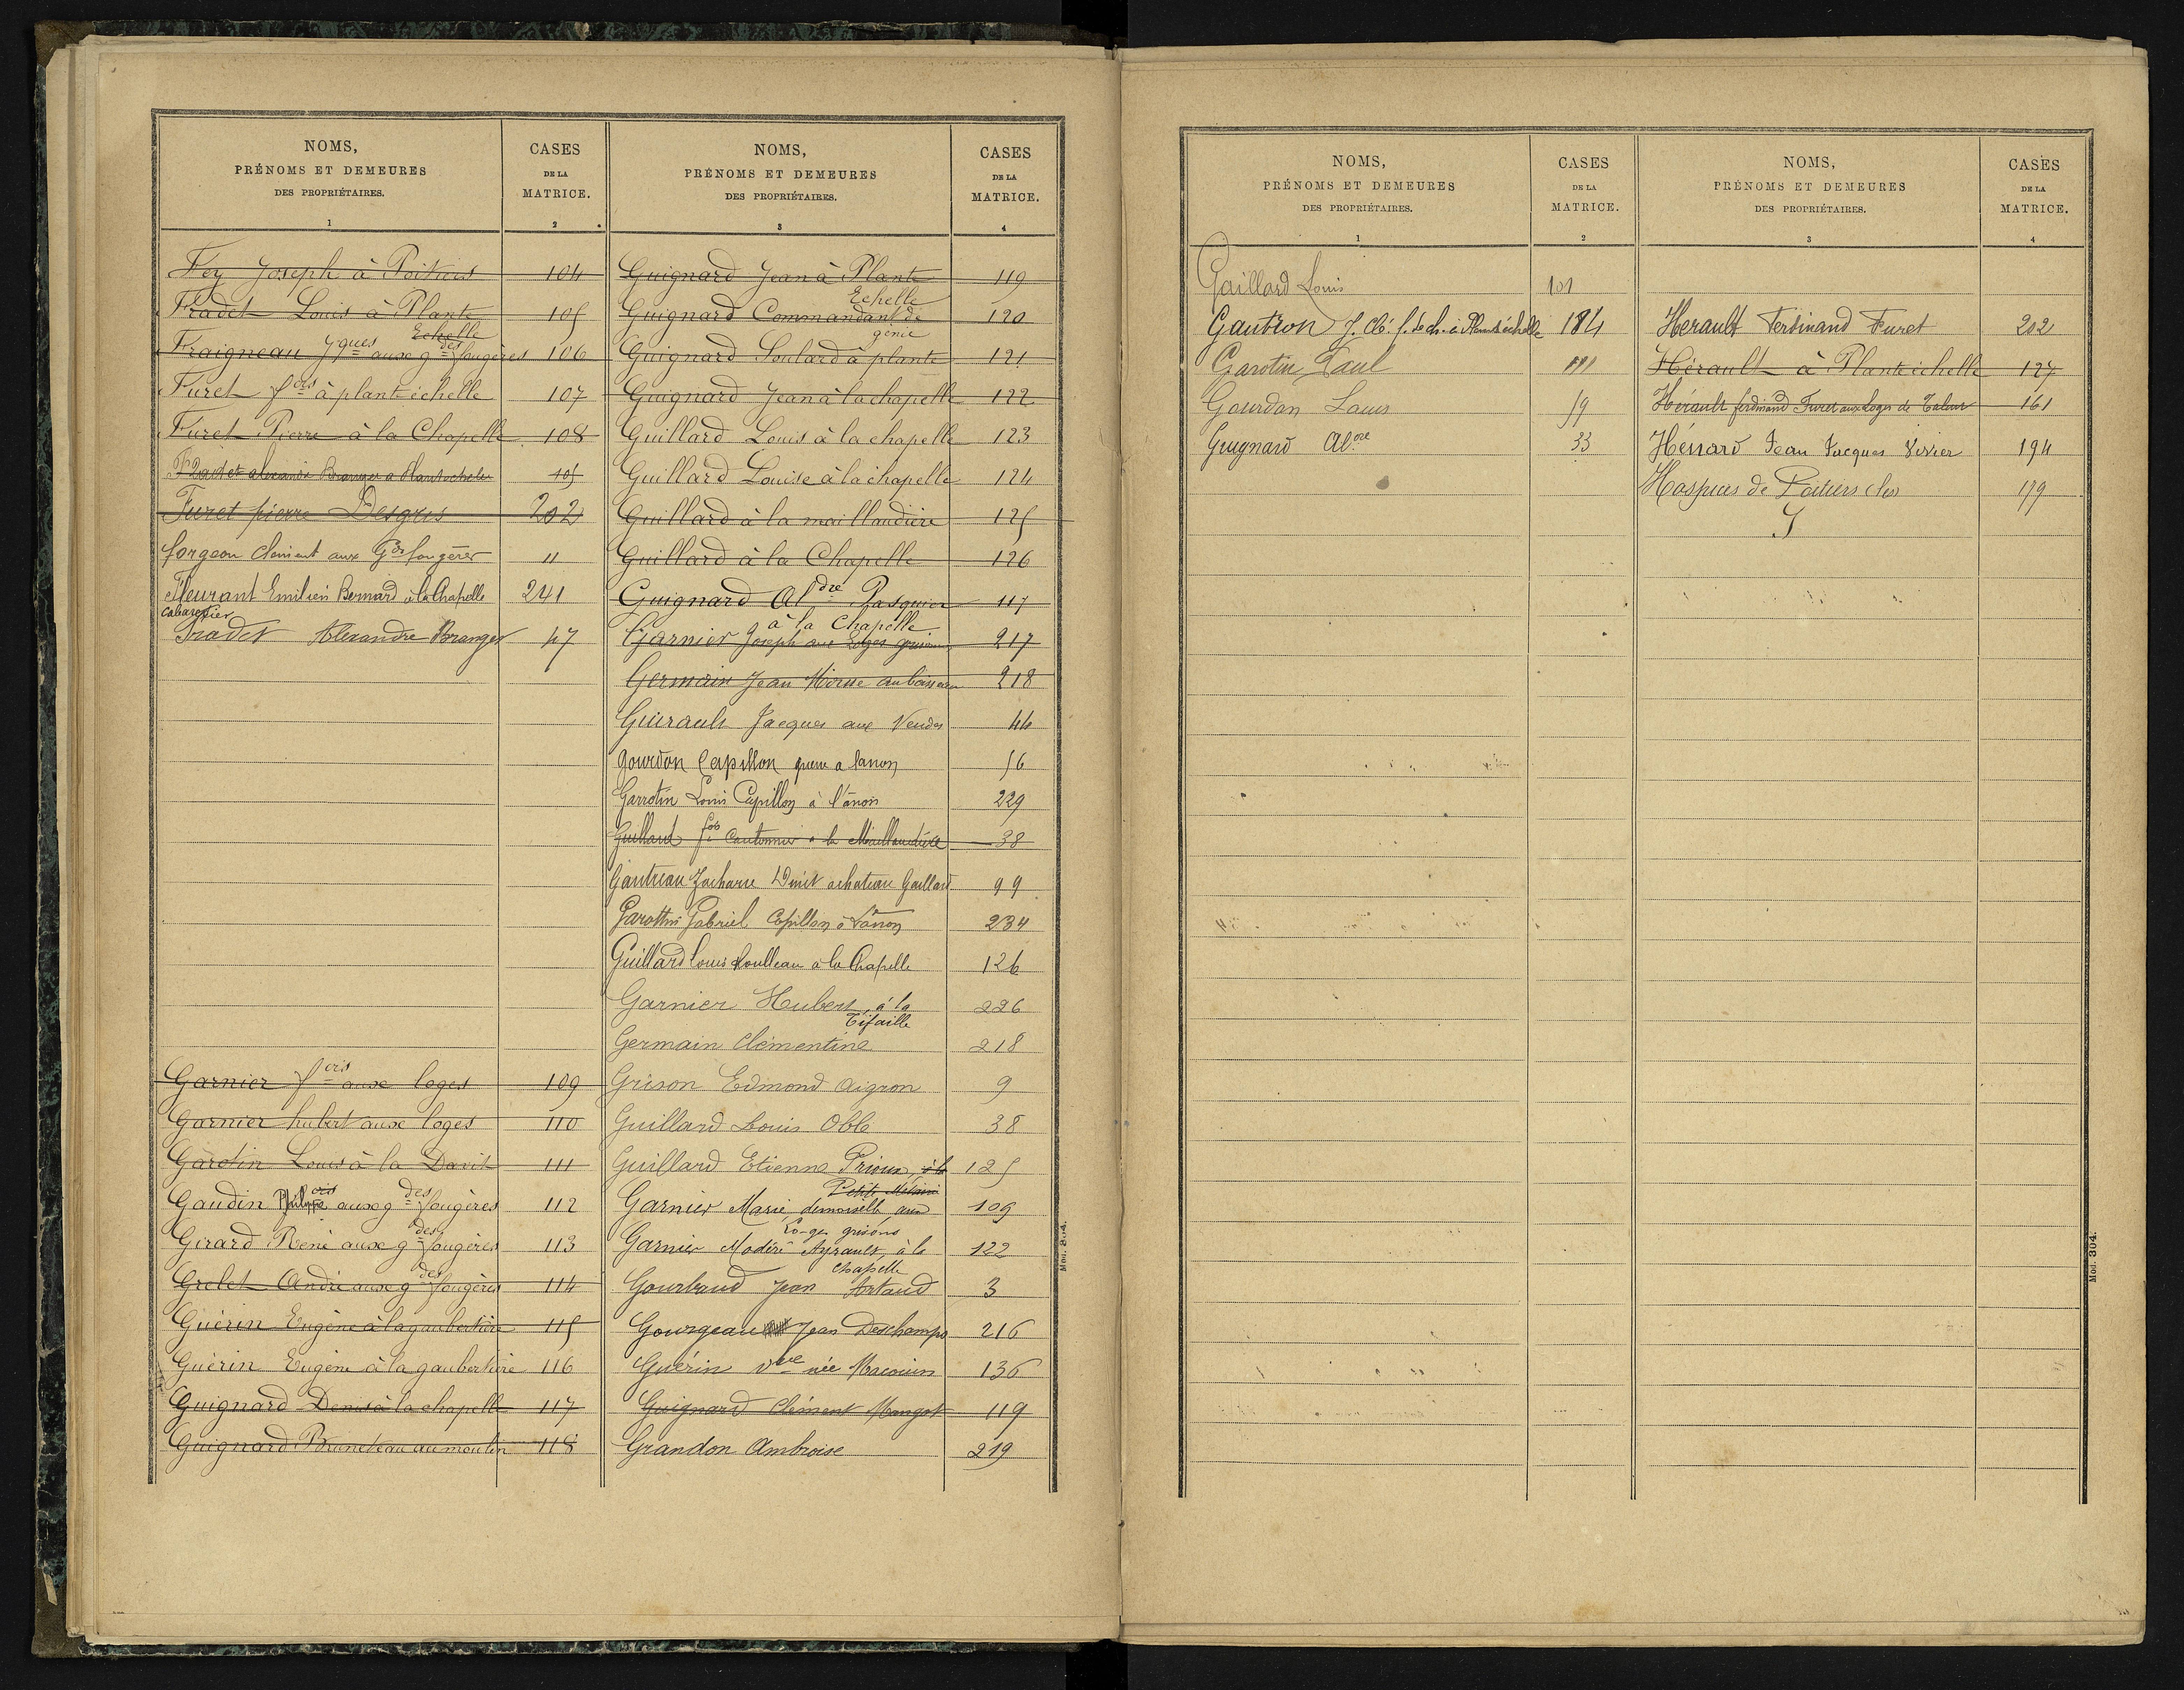 NOMS,
PRÉNOMS ET DEMEURES
DES PROPRIÉTAIRES.
1
CASES
DE LA
MATRICE.
2
Fey Joseph à Poitiers 104
Fradet Louis à Plante Echelle 105
Fraigneau Jques aux gdes fougères 106
Furet fcois à plante échelle 107
Furet Pierre à la Chapelle 108
Fradet alexandre Branger a Plantechelle 105
Furet pierre Desgris 202
forgeon Clement aux Gdes fougères 11
Fleurant Emilien Bernard à la Chapelle 241
cabaretier
Fradet Alexandre Branger 47
Garnier fcois aux loges 109
Garnier hubert aux loges 110
Garotin Louis à la David 111
Gaudin aux gdes fougères 112
Girard René aux gdes fougères 113
Grelet André aux gdes fougères 114
Guérin Eugène à la gaubertière 115
Guérin Eugène à la gaubertière 116
Guignard Denis à la chapelle 117
Guignard Bruneteau au moulin 118
NOMS,
PRÉNOMS ET DEMEURES
DES PROPRIÉTAIRES.
3
CASES
DE LA
MATRICE.
4
Guignard Jean à Plante Echelle 119
Guignard Commandant de génie 120
Guignard Soulard à plante 121
Guignard Jean à la chapelle 122
Guillard Louis à la chapelle 123
Guillard Louise à la chapelle 124
Guillard à la maillaudière 125
Guillard à la Chapelle 126
Guignard Aldre Pasquier 117
à la Chapelle
Garnier Joseph aux Loges grisons 217
Germain Jean 218
Guérault Jacques aux Vendes 44
Gourdon Capillon a lanon 56
Garrotin Louis Capillon à l'ânon 229
Guillard fois Cantonnier a la Maillaudière 38
Gautreau Zacharie Dinet achateau Gaillard 99
Garottin Gabriel Capillon à Lanon 234
Guillard Louis Roulleau à la Chapelle 126
Garnier Hubert, à la Tifaille 226
Germain Clémentine 218
Grison Edmond Aigron 9
Guillard Louis Oble 38
Guillard Etienne Prioux, à la 125
Petite
Garnier Marie, demoiselle, aux 109
Lo-ges grisons
Garnier Modéré Ayrault, à la 122
Chapelle
Gourbaud Jean Artaud 3
Gourgeau Jean Deschamps 216
Guérin Vve née Macouin 136
Guignard Clément Mangot 119
Grandon Ambroise 219
Mod. 304.
NOMS,
PRÉNOMS ET DEMEURES
DES PROPRIÉTAIRES.
1
CASES
DE LA
MATRICE.
2
Gaillard Louis 101
Gautron J. 184
Garotin Paul 111
Gourdon Louis 59
Guignard Aldre 33
NOMS,
PRÉNOMS ET DEMEURES
DES PROPRIÉTAIRES.
3
CASES
DE LA
MATRICE.
4
Herault Ferdinand Furet 202
Hérault à Plante échelle 127
Hérault ferdinand Furet aux Loges de 161
Hérisard Jean Jacques Verrier 194
Hospices de Poitiers (les) 179
J
Mod. 304.